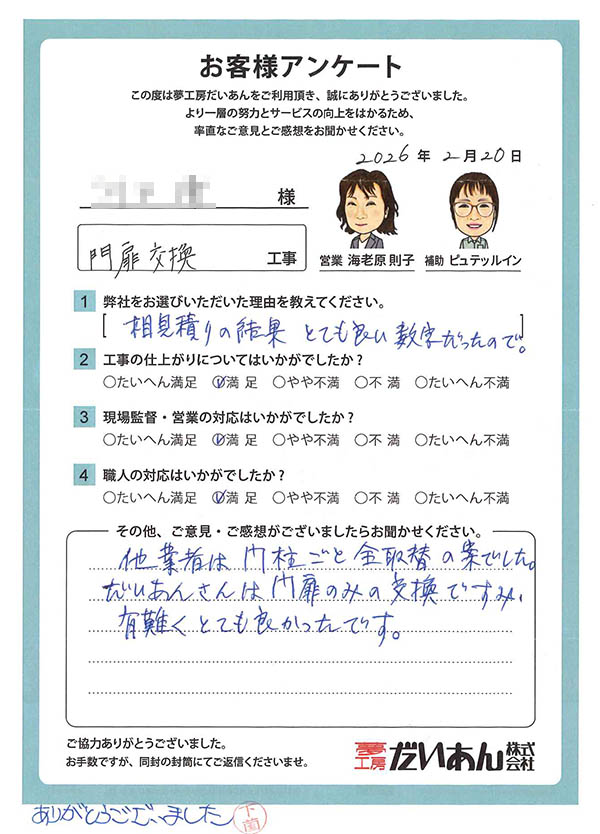 お客様アンケート
この度は夢工房だいあんをご利用頂き、誠にありがとうございました。
より一層の努力とサービスの向上をはかるため、
率直なご意見とご感想をお聞かせください。
2026年 2月20日
様
門扉交換 工事
営業 海老原 則子 補助 ピュテッルイン
1 弊社をお選びいただいた理由を教えてください。
[ 相見積りの結果 とても良い数字だったので。 ]
2 工事の仕上がりについてはいかがでしたか？
○たいへん満足 ✓○満 足 ○やや不満 ○不 満 ○たいへん不満
3 現場監督・営業の対応はいかがでしたか？
○たいへん満足 ✓○満 足 ○やや不満 ○不 満 ○たいへん不満
4 職人の対応はいかがでしたか？
○たいへん満足 ✓○満 足 ○やや不満 ○不 満 ○たいへん不満
その他、ご意見・ご感想がございましたらお聞かせください。
他業者は 門柱ごと 全取替 の案でした。
だいあんさんは門扉のみの交換ですみ、
有難くとても良かったです。
ご協力ありがとうございました。
お手数ですが、同封の封筒にてご返信くださいませ。
夢工房 だいあん 株式会社
ありがとうございました 下薗